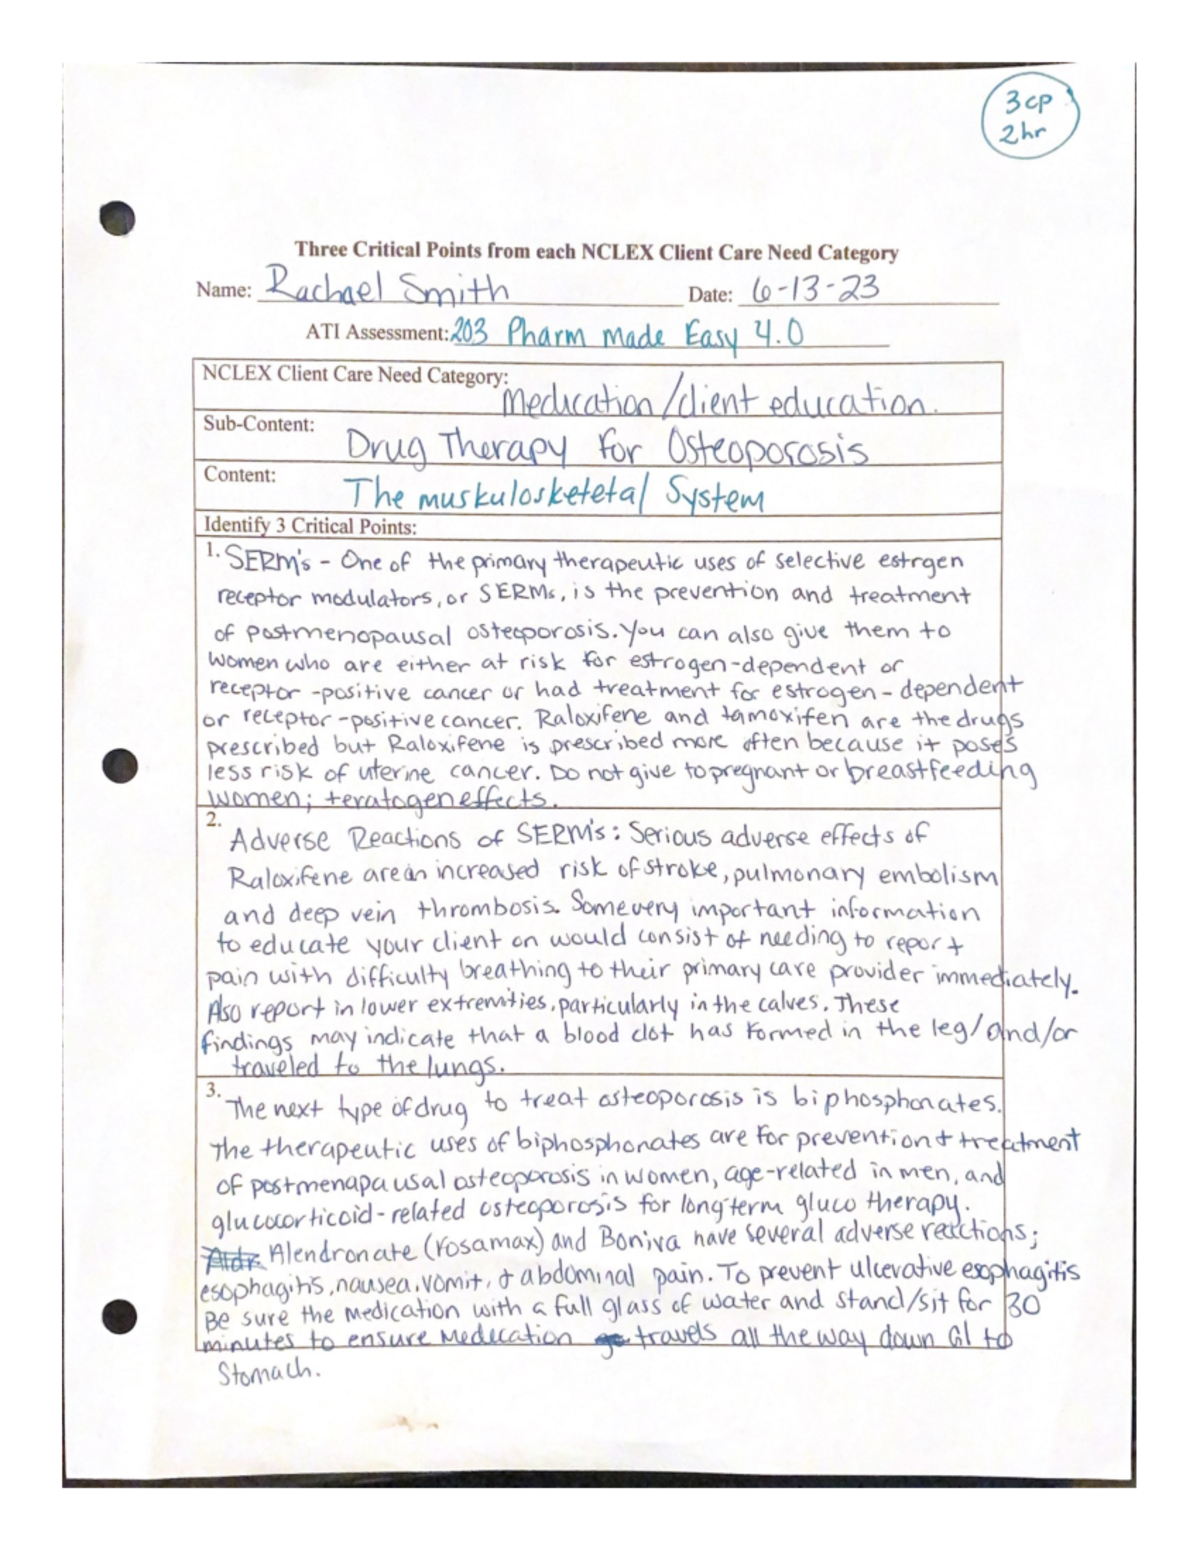 3 cp
2 hr
Three Critical Points from each NCLEX Client Care Need Category
Name: Rachael Smith Date: 6-13-23
ATI Assessment: 203 Pharm made Easy 4.0
NCLEX Client Care Need Category: Medication/client education.
Sub-Content: Drug Therapy for Osteoporosis
Content: The muskulosketetal System
Identify 3 Critical Points:
1. SERM's - One of the primary therapeutic uses of selective estrgen
receptor modulators, or SERMs, is the prevention and treatment
of postmenopausal osteoporosis. You can also give them to
women who are either at risk for estrogen-dependent or
receptor-positive cancer or had treatment for estrogen-dependent
or receptor-positive cancer. Raloxifene and tamoxifen are the drugs
prescribed but Raloxifene is prescribed more often because it poses
less risk of uterine cancer. Do not give to pregnant or breastfeeding
women; teratogen effects.
2. Adverse Reactions of SERM's: Serious adverse effects of
Raloxifene are an increased risk of stroke, pulmonary embolism
and deep vein thrombosis. Some very important information
to educate your client on would consist of needing to report
pain with difficulty breathing to their primary care provider immediately.
Also report in lower extremities, particularly in the calves. These
findings may indicate that a blood clot has formed in the leg/and/or
traveled to the lungs.
3. The next type of drug to treat osteoporosis is biphosphonates.
The therapeutic uses of biphosphonates are for prevention + treatment
of postmenapausal osteoporosis in women, age-related in men, and
glucocorticoid-related osteoporosis for long term gluco therapy.
Alendronate (rosamax) and Boniva have several adverse reactions;
esophagitis, nausea, vomit, & abdominal pain. To prevent ulcerative esophagitis
Be sure the medication with a full glass of water and stand/sit for 30
minutes to ensure medication travels all the way down GI to
Stomach.